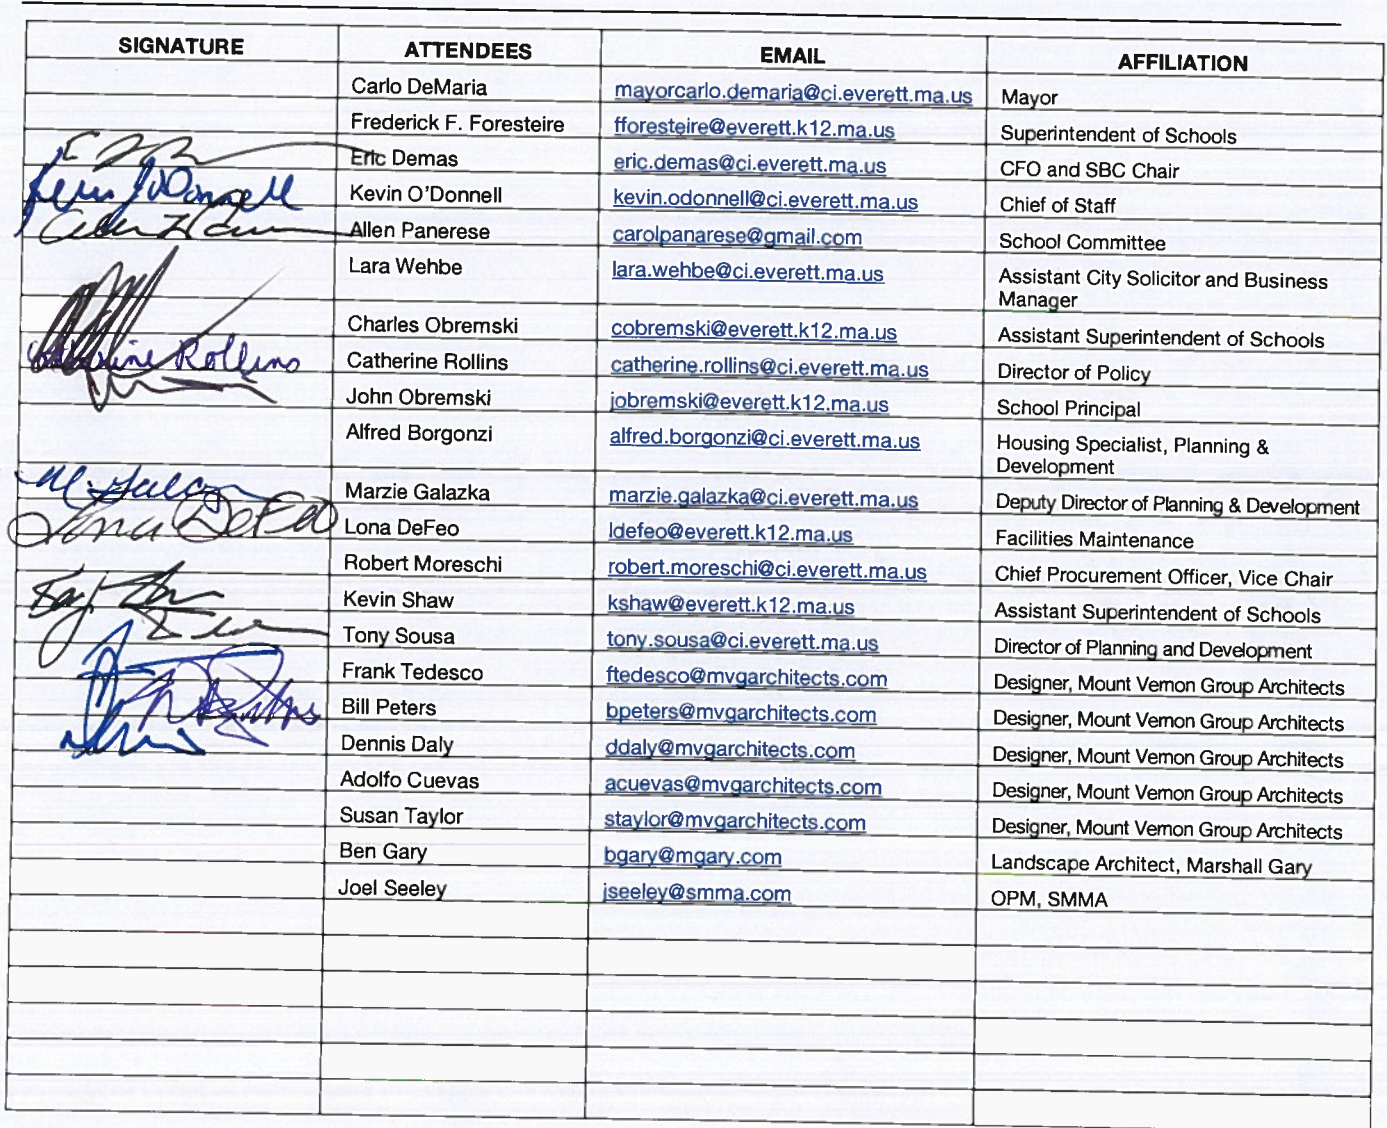 SIGNATURE ATTENDEES EMAIL AFFILIATION
Carlo DeMaria mayorcarlo.demaria@ci.everett.ma.us Mayor
Frederick F. Foresteire fforesteire@everett.k12.ma.us Superintendent of Schools
Eric Demas eric.demas@ci.everett.ma.us CFO and SBC Chair
Kevin O'Donnell Kevin O'Donnell kevin.odonnell@ci.everett.ma.us Chief of Staff
Allen Panerese carolpanarese@gmail.com School Committee
Lara Wehbe lara.wehbe@ci.everett.ma.us Assistant City Solicitor and Business
Manager
Charles Obremski cobremski@everett.k12.ma.us Assistant Superintendent of Schools
Catherine Rollins Catherine Rollins catherine.rollins@ci.everett.ma.us Director of Policy
John Obremski jobremski@everett.k12.ma.us School Principal
Alfred Borgonzi alfred.borgonzi@ci.everett.ma.us Housing Specialist, Planning &
Development
Marzie Galazka marzie.galazka@ci.everett.ma.us Deputy Director of Planning & Development
Lona DeFeo Lona DeFeo ldefeo@everett.k12.ma.us Facilities Maintenance
Robert Moreschi robert.moreschi@ci.everett.ma.us Chief Procurement Officer, Vice Chair
Kevin Shaw kshaw@everett.k12.ma.us Assistant Superintendent of Schools
Tony Sousa tony.sousa@ci.everett.ma.us Director of Planning and Development
Frank Tedesco ftedesco@mvgarchitects.com Designer, Mount Vernon Group Architects
Bill Peters bpeters@mvgarchitects.com Designer, Mount Vernon Group Architects
Dennis Daly ddaly@mvgarchitects.com Designer, Mount Vernon Group Architects
Adolfo Cuevas acuevas@mvgarchitects.com Designer, Mount Vernon Group Architects
Susan Taylor staylor@mvgarchitects.com Designer, Mount Vernon Group Architects
Ben Gary bgary@mgary.com Landscape Architect, Marshall Gary
Joel Seeley jseeley@smma.com OPM, SMMA